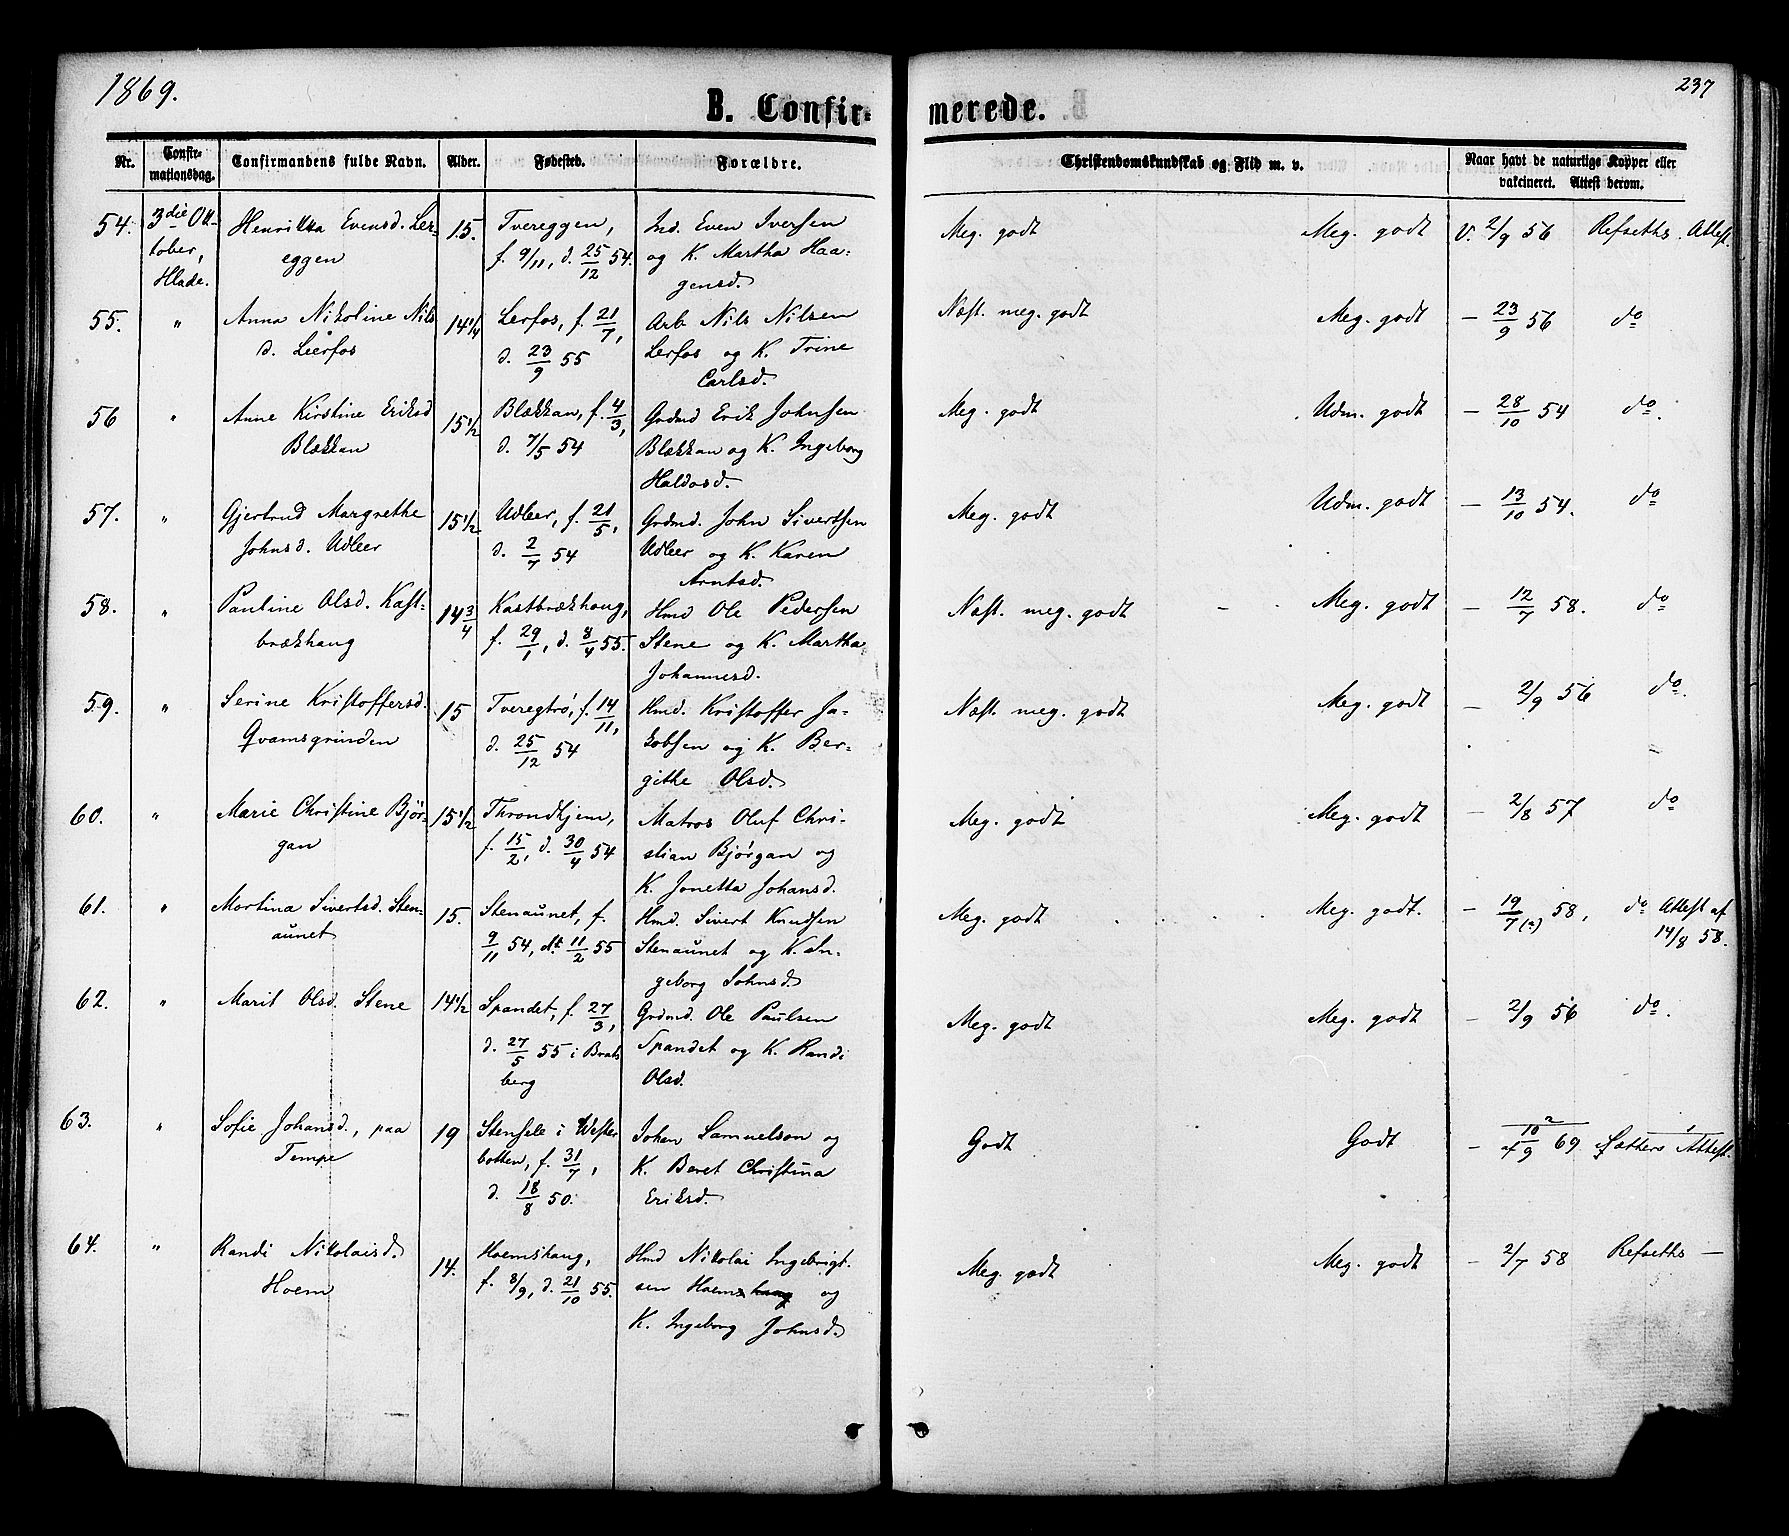 1869.
237
B. Confirmerede.
Nr. Confirmationsdag. Confirmandens fulde Navn. Alder. Fødested. Forældre. Christendomskundskab og Flid m. v. Naar havt de naturlige Kopper eller vakcineret. Attest derom.
54. 3die October, Hlade. Henrikka Evensd. Lereggen 15. Tvereggen, f. 9/11, d. 25/12 54. Ind. Even Iversen og K. Martha Haagensd. Meg. godt Meg. godt V. 2/9 56 Refseths Attest.
55. " Anna Nikoline Nilsd. Leerfos 14 1/4 Lerfos, f. 21/7, d. 23/9 55 Arb. Nils Nilsen Lerfos og K. Trine Carlsd. Næst. meg. godt Meg. godt – 23/9 56 do
56 " Anne Kirstine Eriksd Blækkan 15 1/2 Blækkan, f. 4/3, d. 7/5 54 Grdmd Erik Johnsen Blækkan og K. Ingeborg Haldosd. Meg. godt Udm. godt – 28/10 54 do.
57. " Gjertrud Margrethe Johnsd. Udleer 15 1/2 Udleer, f. 21/5, d. 2/7 54 Grdmd. John Sivertsen Udleer og K. Karen Arntsd. Meg. godt Udm. godt – 13/10 54. do
58. " Pauline Olsd. Kastbrækhaug 14 3/4 Kastbrækhaug, f. 29/1, d. 8/4 55. Hmd Ole Pedersen Stene og K. Martha Johannesd. Næst. meg. godt Meg. godt – 12/7 58. do
59. " Serine Kristoffersd. Qvamsgrinden 15 Tveregtrø, f. 14/11, d. 25/12 54 Hmd. Kristoffer Jakobsen og K. Bergithe Olsd. Næst. meg. godt Meg. godt – 2/9 56 do.
60. " Marie Christine Bjørgan 15 1/2 Throndhjem, f. 15/2, d. 30/4 54 Matros Oluf Christian Bjørgan og K. Jonetta Johansd. Meg. godt Meg. godt – 2/8 57 do
61. " Martina Sivertsd. Stenaunet 15. Stenaunet, f. 9/11 54, dt 11/2 55 Hmd. Sivert Knudsen Stenaunet og K. Ingeborg Johnsd. Meg. godt Meg. godt. – 19/7 (?) 58, do Attest af 14/8 58.
62. " Marit Olsd. Stene 14 1/2 Spandet, f. 27/3, d. 27/5 55 i Bratsberg Grdmd. Ole Paulsen Spandet og K. Randi Olsd. Meg. godt Meg. godt – 2/9 56 do.
63. " Sofie Johansd., paa Tempe 19 Stensele i Westerbotten, f. 31/7, d. 18/8 50. Johan Samuelson og K. Beret Christina Eriksd. Godt Godt – af 10/9 69 Sætters Attest.
64. " Randi Nikolaisd. Hoem 14. Hoemshaug, f. 8/9, d. 21/10 55. Hmd Nikolai Ingebrigtsen Hoemshaug og K. Ingeborg Johnsd. Meg. godt Meg. godt – 2/7 58 Refseths –